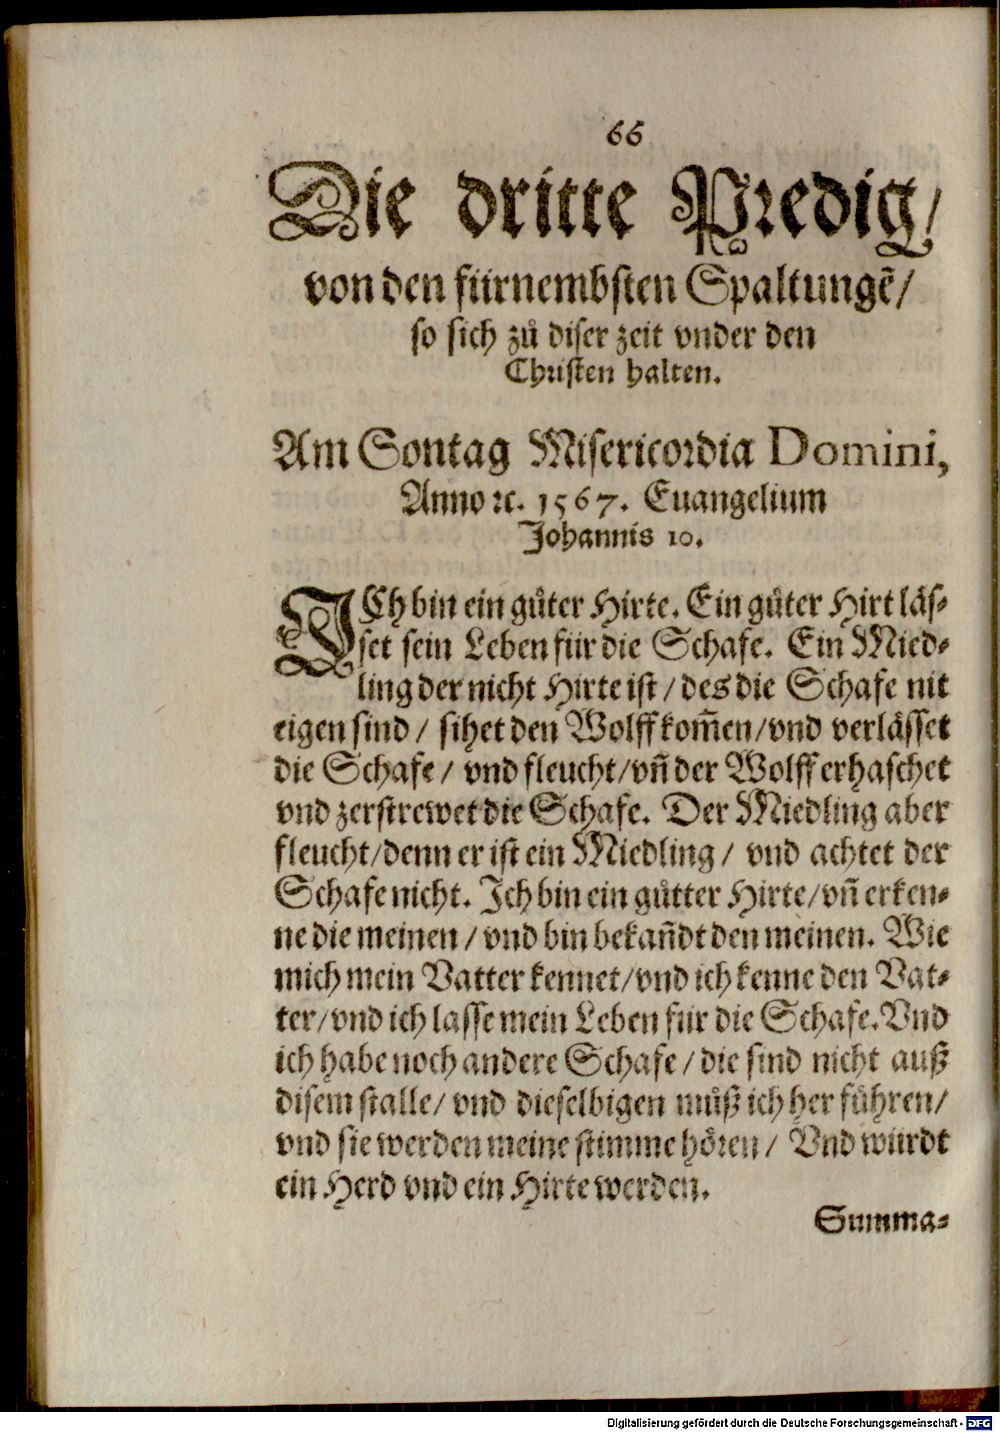 66
Die dritte Predig/
von den fürnembsten Spaltungẽ/
so sich zů diser zeit vnder den
Christen halten.
Am Sontag Misericordia Domini,
Anno ꝛc. 1567. Euangelium
Johannis 10.
ICh bin ein gůter Hirte. Ein gůter Hirt läs-
set sein Leben für die Schafe. Ein Mied-
ling der nicht Hirte ist / des die Schafe nit
eigen sind / sihet den Wolff kom̃en/vnd verlässet
die Schafe / vnd fleucht/vñ der Wolff erhaschet
vnd zerstrewet die Schafe. Der Miedling aber
fleucht/denn er ist ein Miedling / vnd achtet der
Schafe nicht. Ich bin ein gůtter Hirte/vñ erken-
ne die meinen / vnd bin bekañdt den meinen. Wie
mich mein Vatter kennet/vnd ich kenne den Vat-
ter/vnd ich lasse mein Leben für die Schafe. Vnd
ich habe noch andere Schafe / die sind nicht auß
disem stalle/ vnd dieselbigen můß ich her führen/
vnd sie werden meine stimme hören / Vnd würdt
ein Herd vnd ein Hirte werden.
Summa-
Digitalisierung gefördert durch die Deutsche Forschungsgemeinschaft - DFG